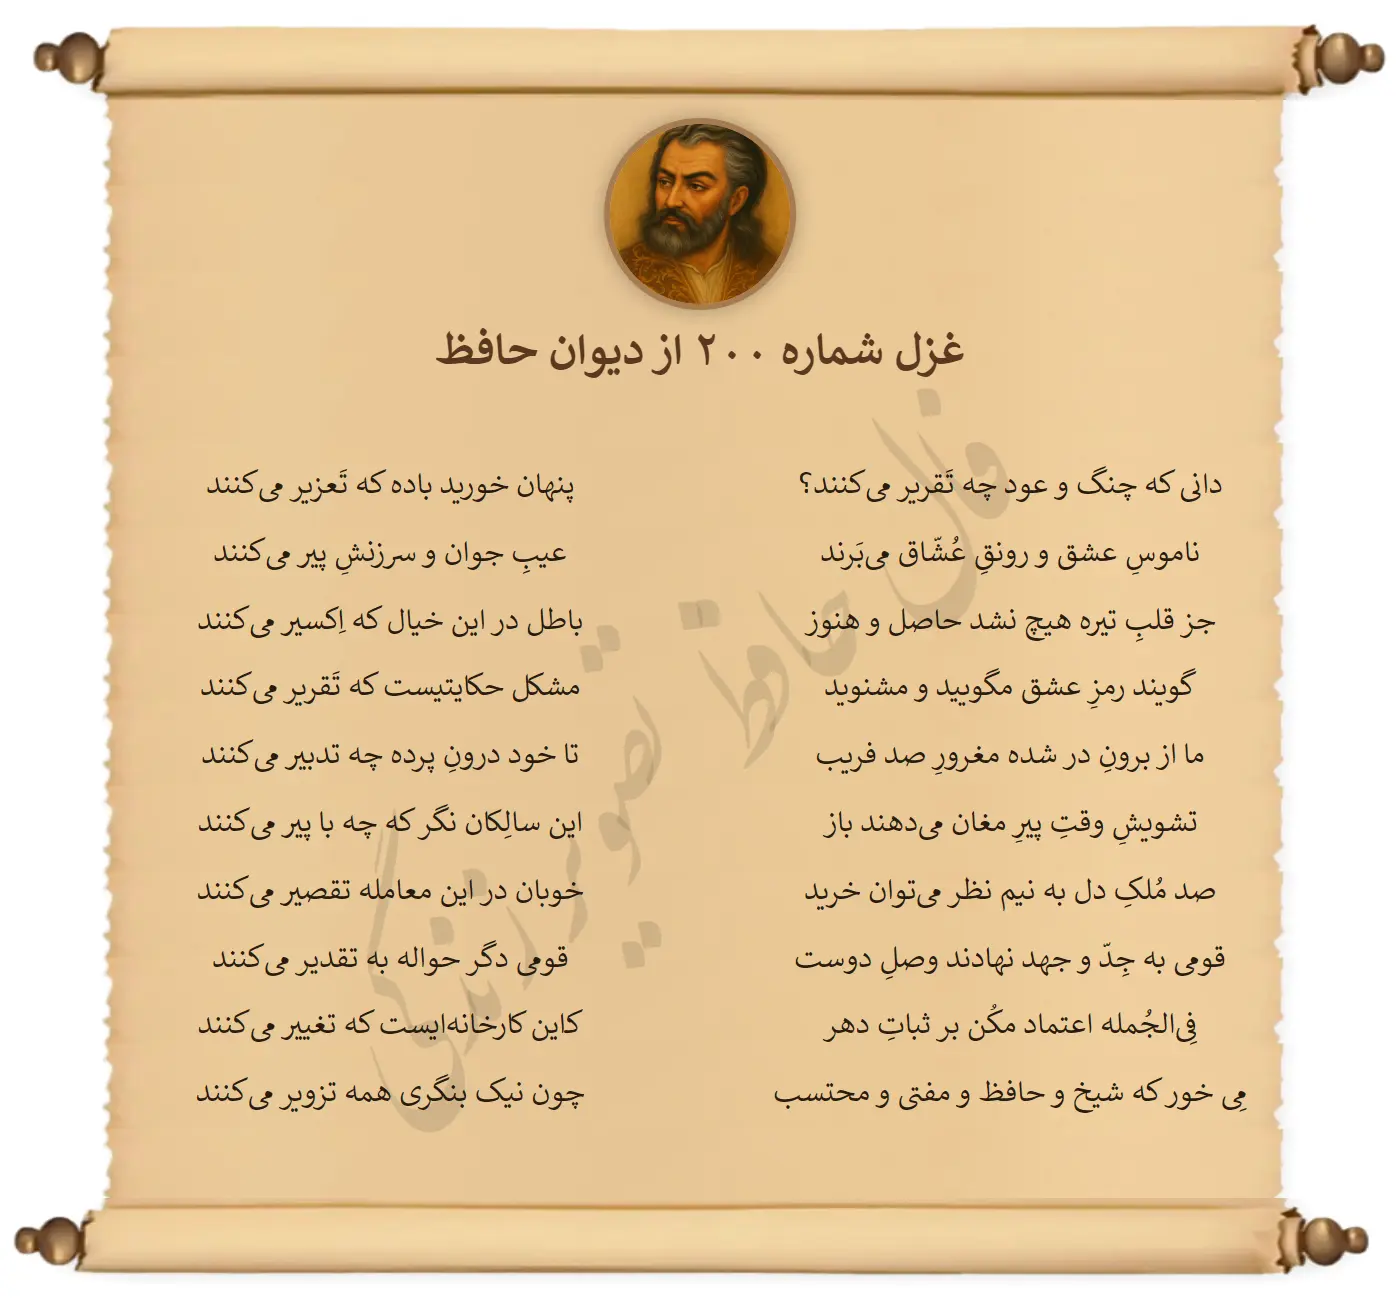 غزل شماره ۲۰۰ از دیوان حافظ
دانی که چنگ و عود چه تَقریر می‌کنند؟ پنهان خورید باده که تَعزیر می‌کنند
ناموسِ عشق و رونقِ عُشّاق می‌بَرند عیبِ جوان و سرزنشِ پیر می‌کنند
جز قلبِ تیره هیچ نشد حاصل و هنوز باطل در این خیال که اِکسیر می‌کنند
گویند رمزِ عشق مگویید و مشنوید مشکل حکایتیست که تَقریر می‌کنند
ما از برونِ در شده مغرورِ صد فریب تا خود درونِ پرده چه تدبیر می‌کنند
تشویشِ وقتِ پیرِ مغان می‌دهند باز این سالِکان نگر که چه با پیر می‌کنند
صد مُلکِ دل به نیم نظر می‌توان خرید خوبان در این معامله تقصیر می‌کنند
قومی به جِدّ و جهد نهادند وصلِ دوست قومی دگر حواله به تقدیر می‌کنند
فِی‌الجُمله اعتماد مکُن بر ثباتِ دهر کاین کارخانه‌ایست که تغییر می‌کنند
مِی خور که شیخ و حافظ و مفتی و محتسب چون نیک بنگری همه تزویر می‌کنند
فال حافظ تصویر زندگی